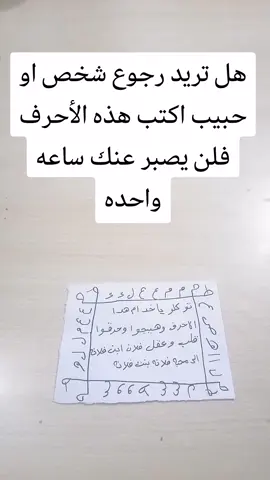 هل تريد رجوع شخص او
حبيب اكتب هذه الأحرف
فلن يصبر عنك ساعه
واحده
توكلو ياخدام هدا
الاحرف وهيجوا وحرقوا
قلب وعقل فلان ابن فلانة
الى محبة فلانه بنت فلانه